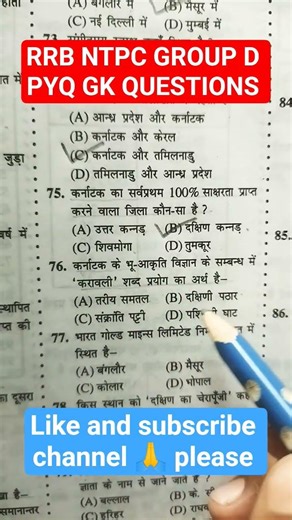 (A) बंगलौर में (B) मैसूर में
(C) नई दिल्ली में (D) मुम्बई में
RRB NTPC GROUP D
PYQ GK QUESTIONS
(A) आन्ध्र प्रदेश और कर्नाटक
(B) कर्नाटक और केरल
जुड़ा
(C) कर्नाटक और तमिलनाडु
(D) तमिलनाडु और आन्ध्र प्रदेश
75. कर्नाटक का सर्वप्रथम 100% साक्षरता प्राप्त
करने वाला जिला कौन-सा है ?
(A) उत्तर कन्नड़ (B) दक्षिण कन्नड़
र्ष में
85.
(C) शिवमोगा (D) तुमकूर
76. कर्नाटक के भू-आकृति विज्ञान के सम्बन्ध में
'करावली' शब्द प्रयोग का अर्थ है–
स्थापित
(A) तरीय समतल (B) दक्षिणी पठार
प्त की
(C) संक्रांति पट्टी (D) घाट
86.
77. भारत गोल्ड माइन्स लिमिटेड में
स्थित है–
(A) बंगलौर (B) मैसूर
(C) कोलार (D) भोपाल
का दूसरा
78. किस स्थान को 'दक्षिण का चेरापूँजी'
Like and subscribe
channel 🙏 please
ज्ञाता के नाम से जाने जाते हैं ?
ा है–
(A) बल्लाल (B) के.
समानान्तर
(C) हरिहर (D)